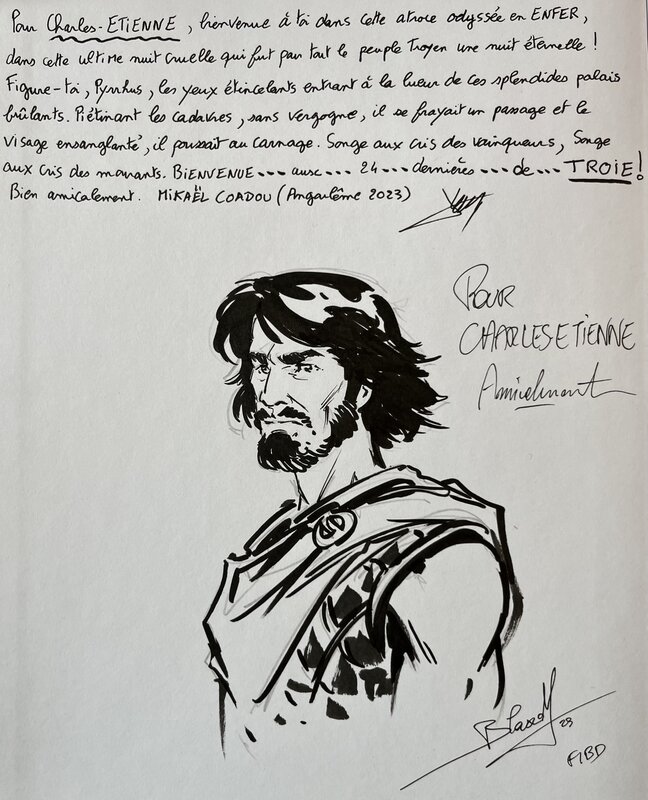 Pour Charles-ETIENNE, bienvenue à toi dans cette atroce odyssée en ENFER,
dans cette ultime nuit cruelle qui fut pour tout le peuple Troyen une nuit éternelle !
Figure-toi, Pyrrhus, les yeux étincelants entrant à la lueur de ces splendides palais
brûlants. Piétinant les cadavres, sans vergogne, il se frayait un passage et le
visage ensanglanté, il poussait au carnage. Songe aux cris des vainqueurs, Songe
aux cris des mourants. BIENVENUE --- aux --- 24 --- dernières --- de --- TROIE !
Bien amicalement. MIKAËL COADOU (Angoulême 2023)
POUR
CHARLES ETIENNE
Amicalement
23
FIBD